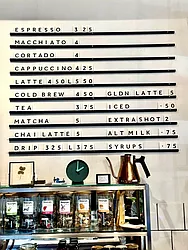 ESPRESSO 325
MACCHIATO 4
CORTADO 4
CAPPUCCINO 425
LATTE 450 L 550
COLD BREW 450 GLDN LATTE 5
TEA 375 ICED -50
MATCHA 5 EXTRA SHOT 2
CHAI LATTE 5 ALT MILK -75
DRIP 325 L 375 SYRUPS -75